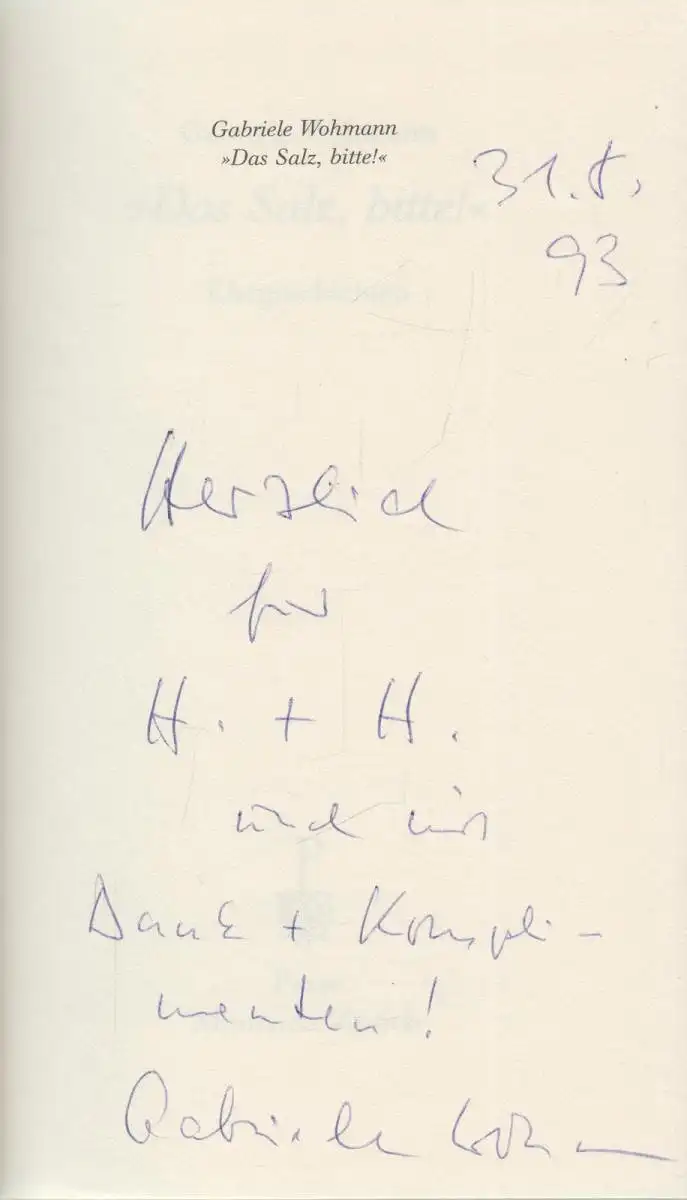 Gabriele Wohmann
»Das Salz, bitte!«
31.8.
93
Herzlich
für
H. + H.
und mit
Dank + Kompli-
menten!
Gabriele Wohmann